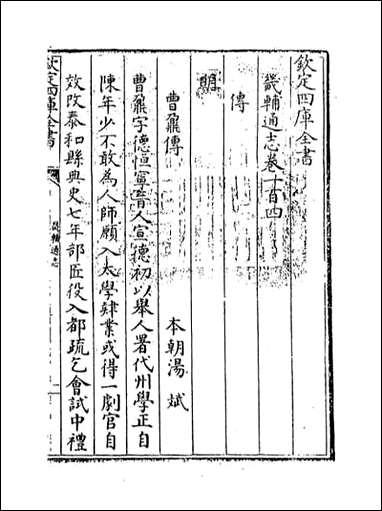 欽定四庫全書
畿輔通志卷一百四
傳
明
曹鼐傳
本朝湯斌
曹鼐字德恒寧晉人宣德初以舉人署代州學正自
陳年少不敢為人師願入太學肄業或得一劇官自
效改泰和縣典史七年部匠役入都疏乞會試中禮
欽定四庫全書
畿輔通志